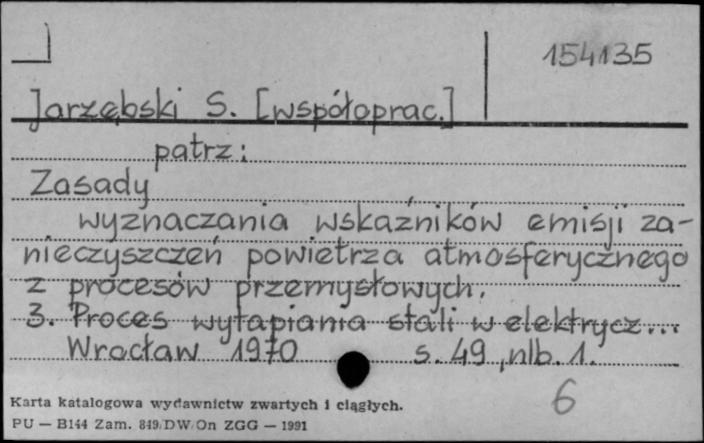 154135
Jarzębski S. [współoprac.]
patrz:
Zasady
wyznaczania wskaźników emisji za-
nieczyszczeń powietrza atmosferycznego
z procesów przemysłowych.
3. Proces wytapiania stali w elektrycz...
Wrocław 1970 s. 49, nlb. 1.
6
Karta katalogowa wydawnictw zwartych i ciągłych.
PU — B144 Zam. 849/DW/On ZGG — 1991